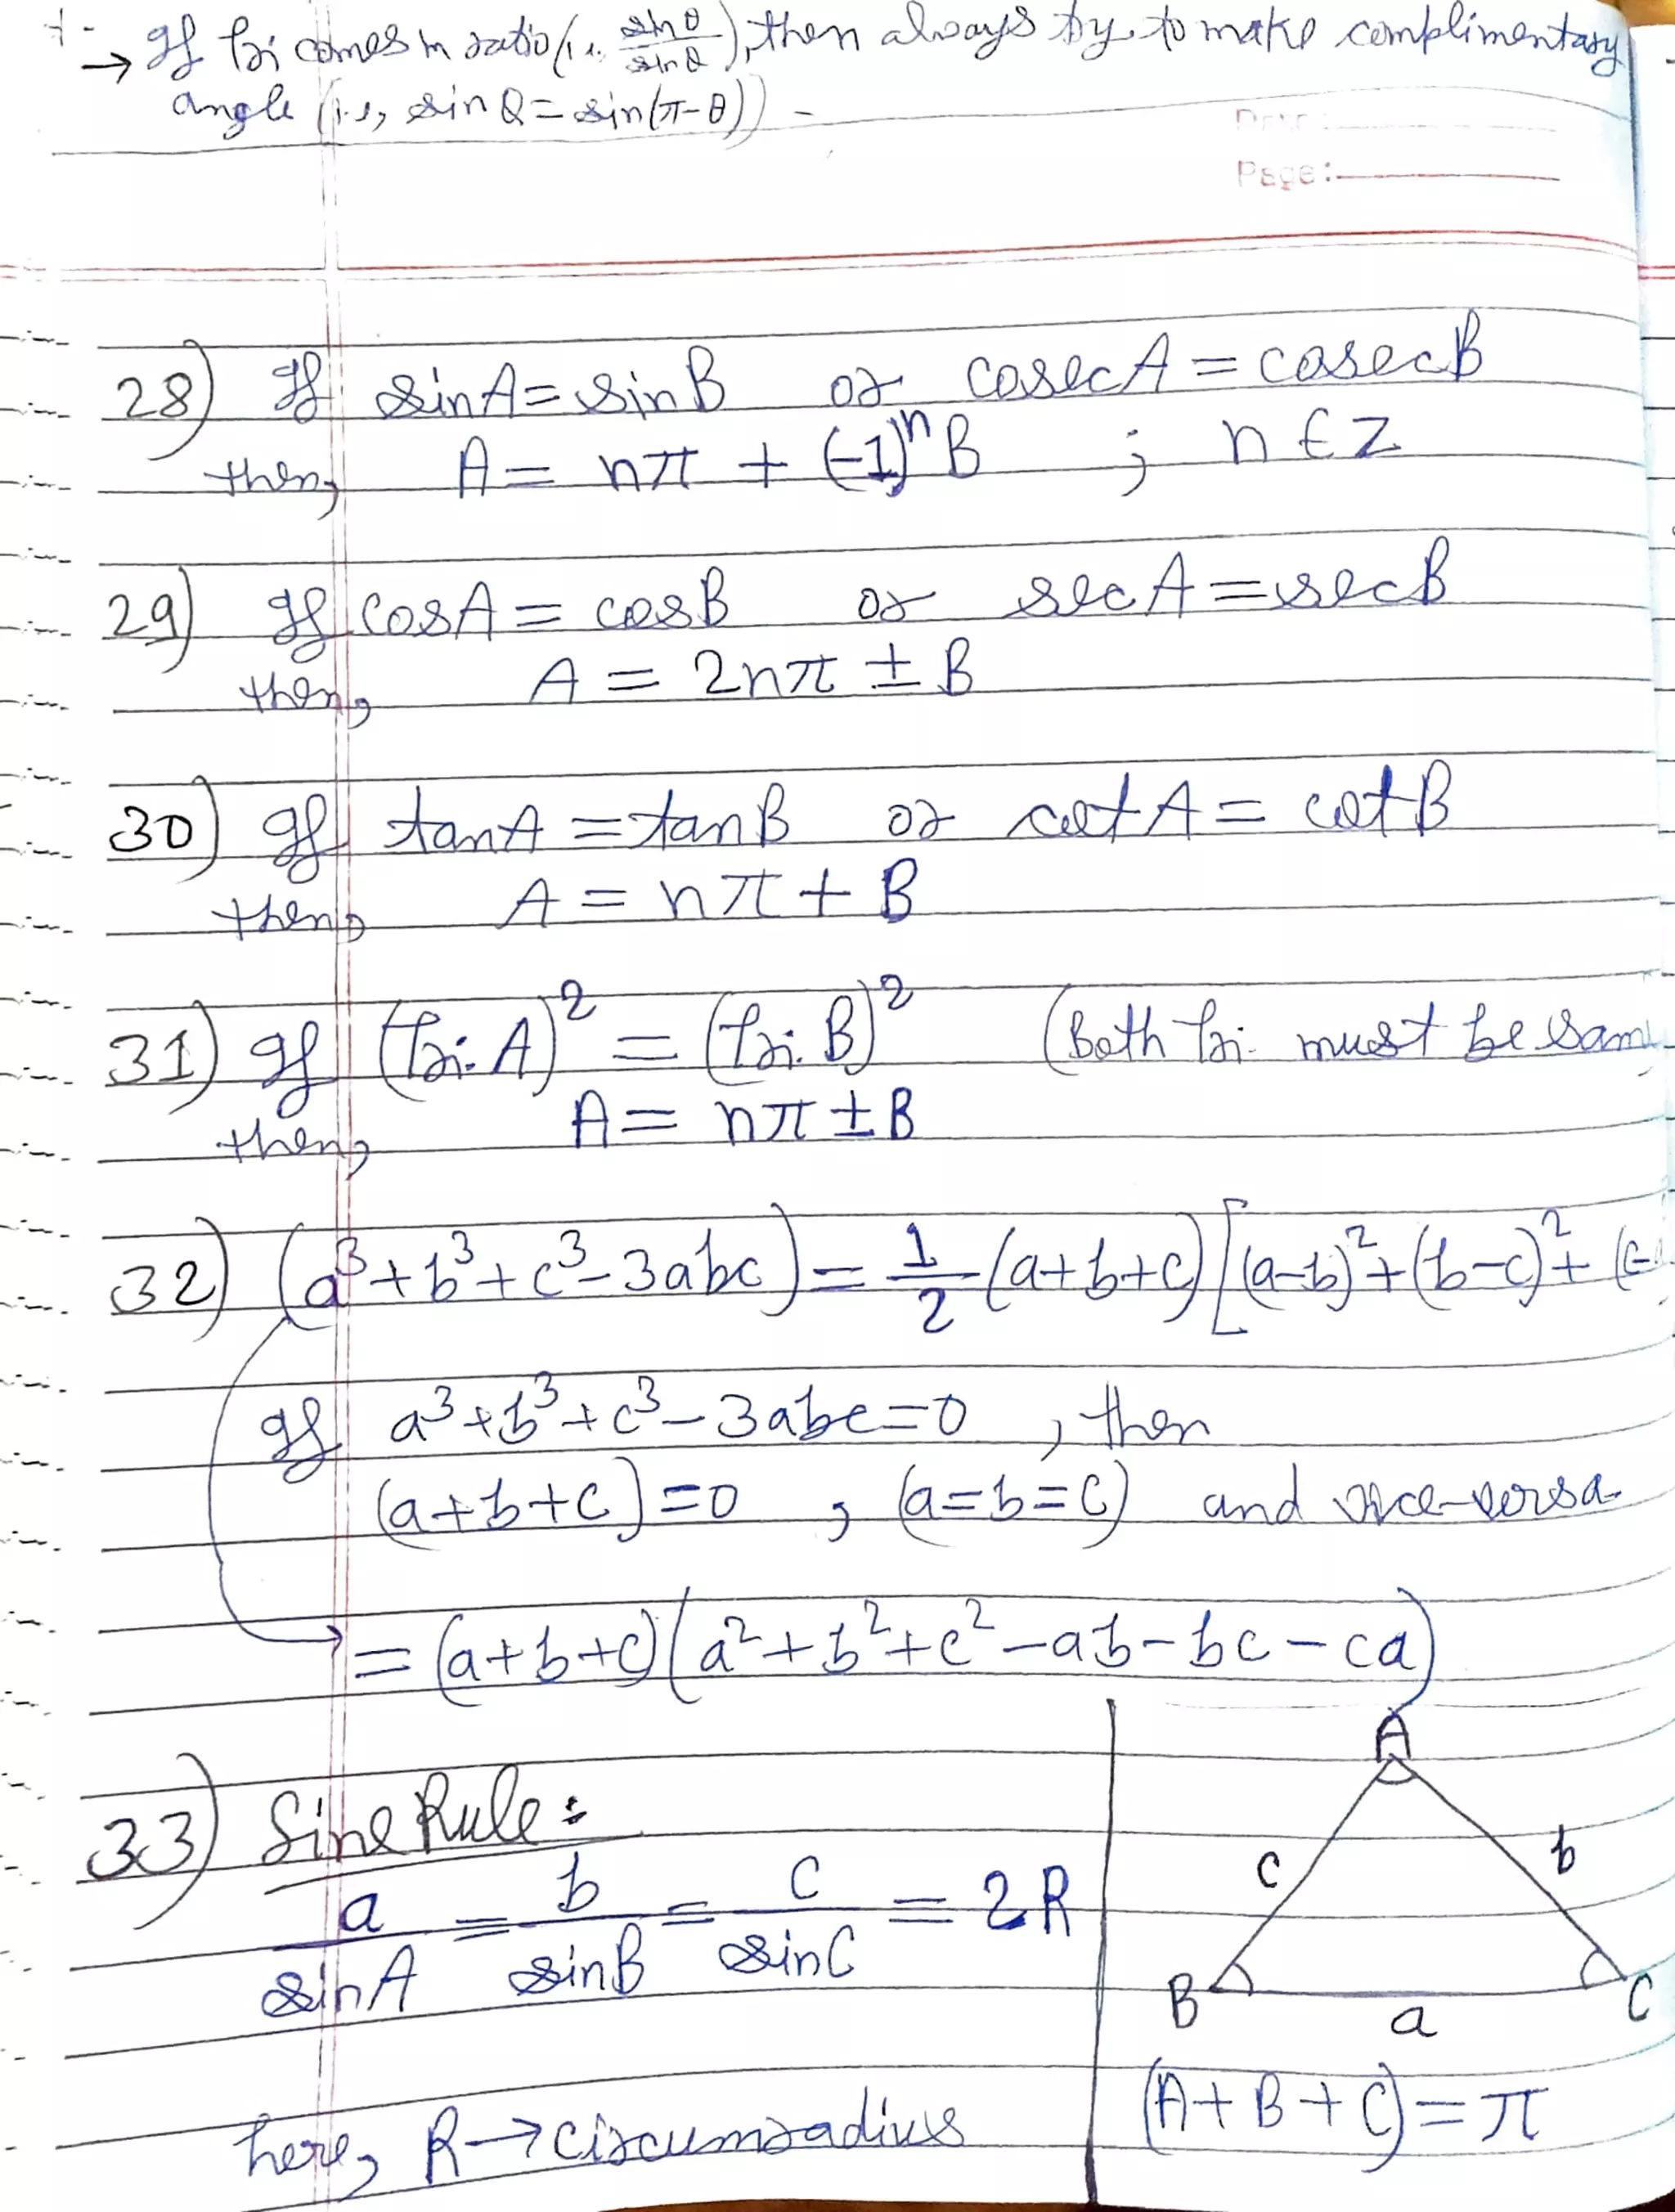 → If Tri comes in ratio (i.e. sinθ/sinθ), then always try to make complimentary
angle (i.e, sinθ = sin(π-θ))
Date:
Page:
28) If sinA = sinB or cosecA = cosecB
then, A = nπ + (-1)ⁿB ; n ∈ Z
29) If cosA = cosB or secA = secB
then, A = 2nπ ± B
30) If tanA = tanB or cotA = cotB
then, A = nπ + B
31) If (Tri. A)² = (Tri. B)² (Both Tri. must be same
then, A = nπ ± B
32) (a³+b³+c³-3abc) = 1/2 (a+b+c) [(a-b)²+(b-c)²+(c-
If a³+b³+c³-3abc=0 , then
(a+b+c)=0 , (a=b=c) and vice-versa
= (a+b+c)(a²+b²+c²-ab-bc-ca)
33) Sine Rule:
a/sinA = b/sinB = c/sinC = 2R
here, R → circumradius
A
c b
B C
a
(A+B+C) = π